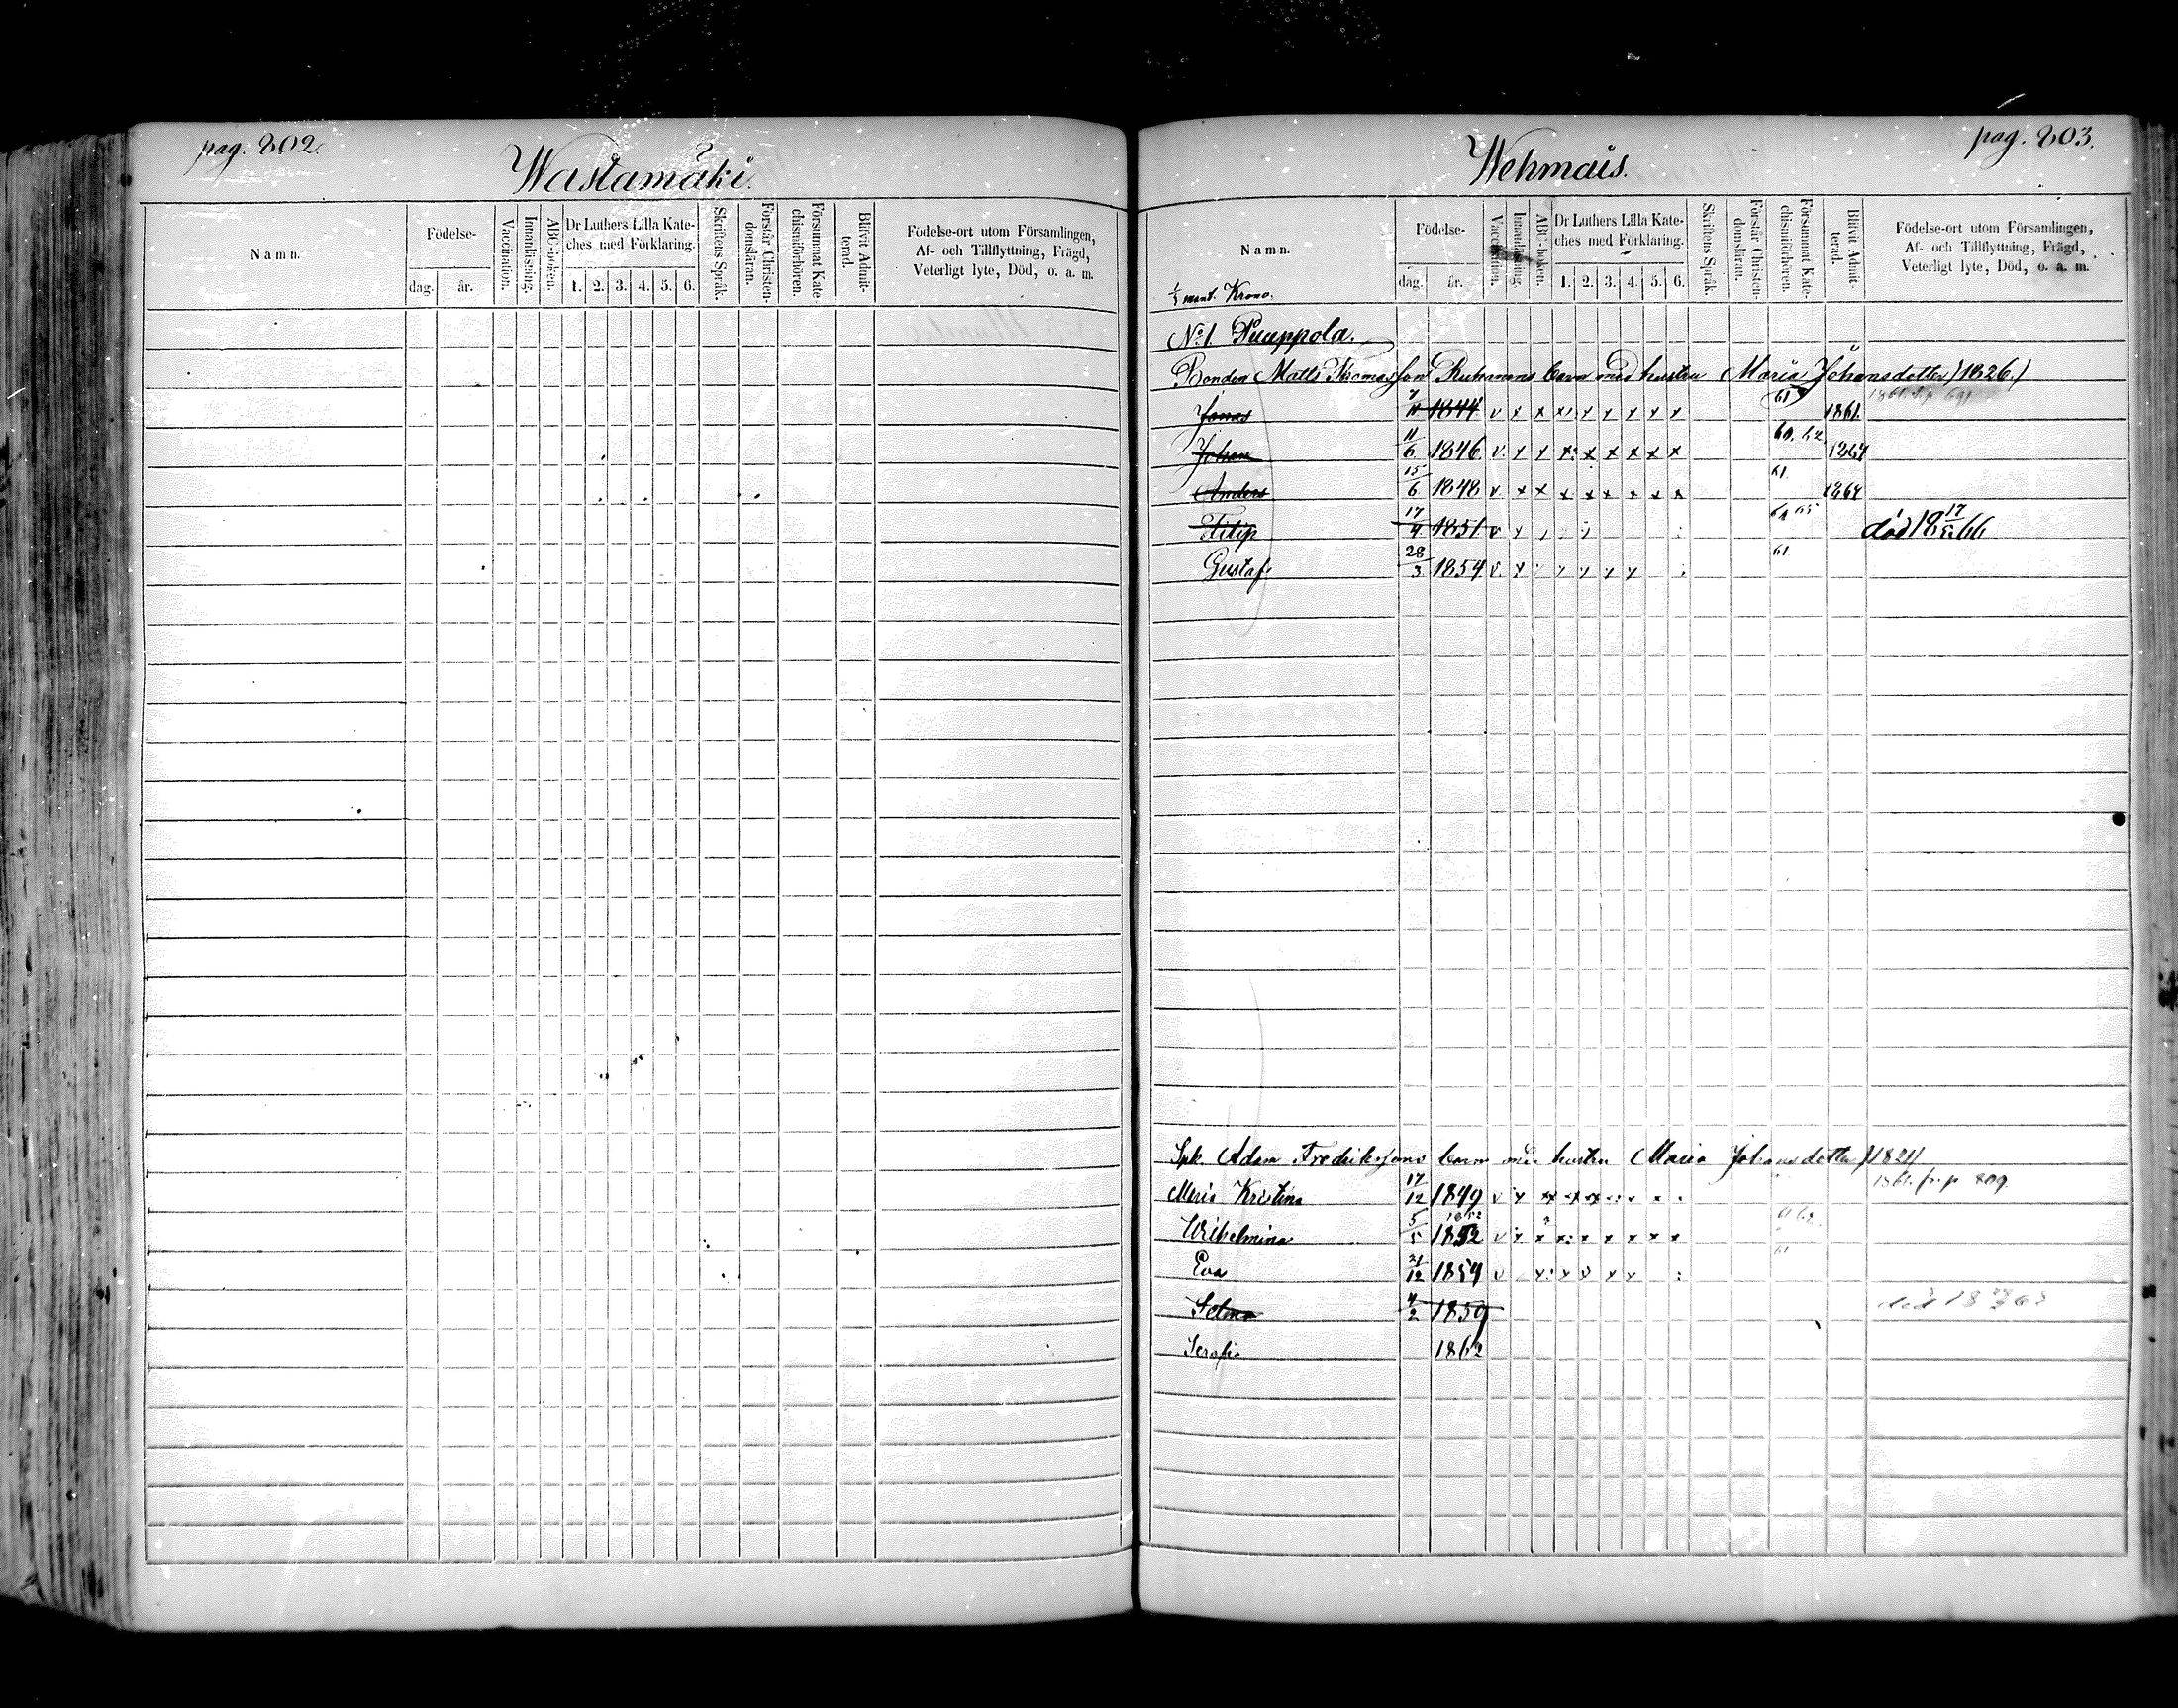 pag. 802.
Wastamäki.
Namn.
Födelse-
dag. år.
Vaccination.
Innanläsning.
ABC-boken.
Dr Luthers Lilla Kate-
ches med Förklaring.
1. 2. 3. 4. 5. 6.
Skriftens Språk.
Förstår Christen-
domsläran.
Försummat Kate-
chismiförhören.
Blifvit Admit-
terad.
Födelse-ort utom Församlingen,
Af- och Tillflyttning, Frägd,
Veterligt lyte, Död, o. a. m.
pag. 803.
Wehmais.
Namn.
Födelse-
dag. år.
Vaccination.
Innanläsning.
ABC-boken.
Dr Luthers Lilla Kate-
ches med Förklaring.
1. 2. 3. 4. 5. 6.
Skriftens Språk.
Förstår Christen-
domsläran.
Försummat Kate-
chismiförhören.
Blifvit Admit-
terad.
Födelse-ort utom Församlingen,
Af- och Tillflyttning, Frägd,
Veterligt lyte, Död, o. a. m.
mant. Krono.
No 1. Puuppola.
Bonden Matts Thomasson barn med hustru Maria Johansdotter /1826./
Jonas 1844 v x x x x x x x x 61 1861.
Johan 11/6 1846 v x x x x x x x x 60. 62 1864
Anders 15/6 1848 v x x x x x x x x 61 1864
Filip 17/4 1851 v 65 död 18 17/5 66
Gustaf 28/3 1854 v. 61
Spk. Adam Fredrikssons barn med hustru Maria Johansdotter /1824/
Maria Kristina 17/12 1849 v x fr. p 809.
Wilhelmina 5/5 1852 v x x x x x x x x
Eva 21/12 1854 v 61
Selma 4/2 1859 död 18
Serafia 1862